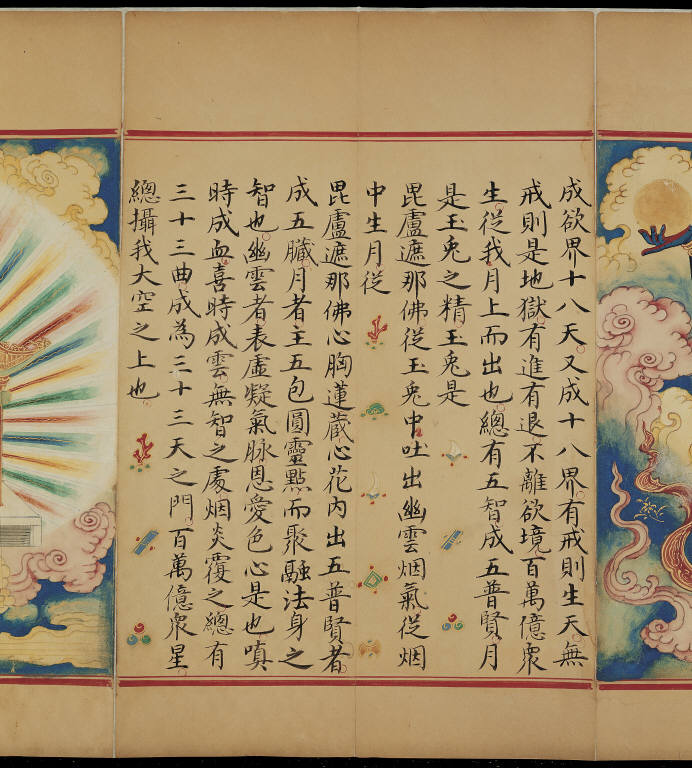 成欲界十八天。又成十八界。有戒則生天。無
戒則是地獄。有進有退不離欲境。百萬億衆
生。從我月上而出也。總有五智成五普賢。月
是玉兎之精。玉兎是
毘盧遮那佛。從玉兎中吐出幽雲烟氣。從烟
中生月。從
毘盧遮那佛心胸蓮蔵心花內出五普賢。者
成五臟。月者主五包圓靈㸃。而聚融法身之
智也。幽雲者表虛凝氣脉。恩愛色心是也。嗔
時成血。喜時成雲。無智之處烟炎覆之。總有
三十三曲。成為三十三天之門。百萬億衆星。
總攝我大空之上也。